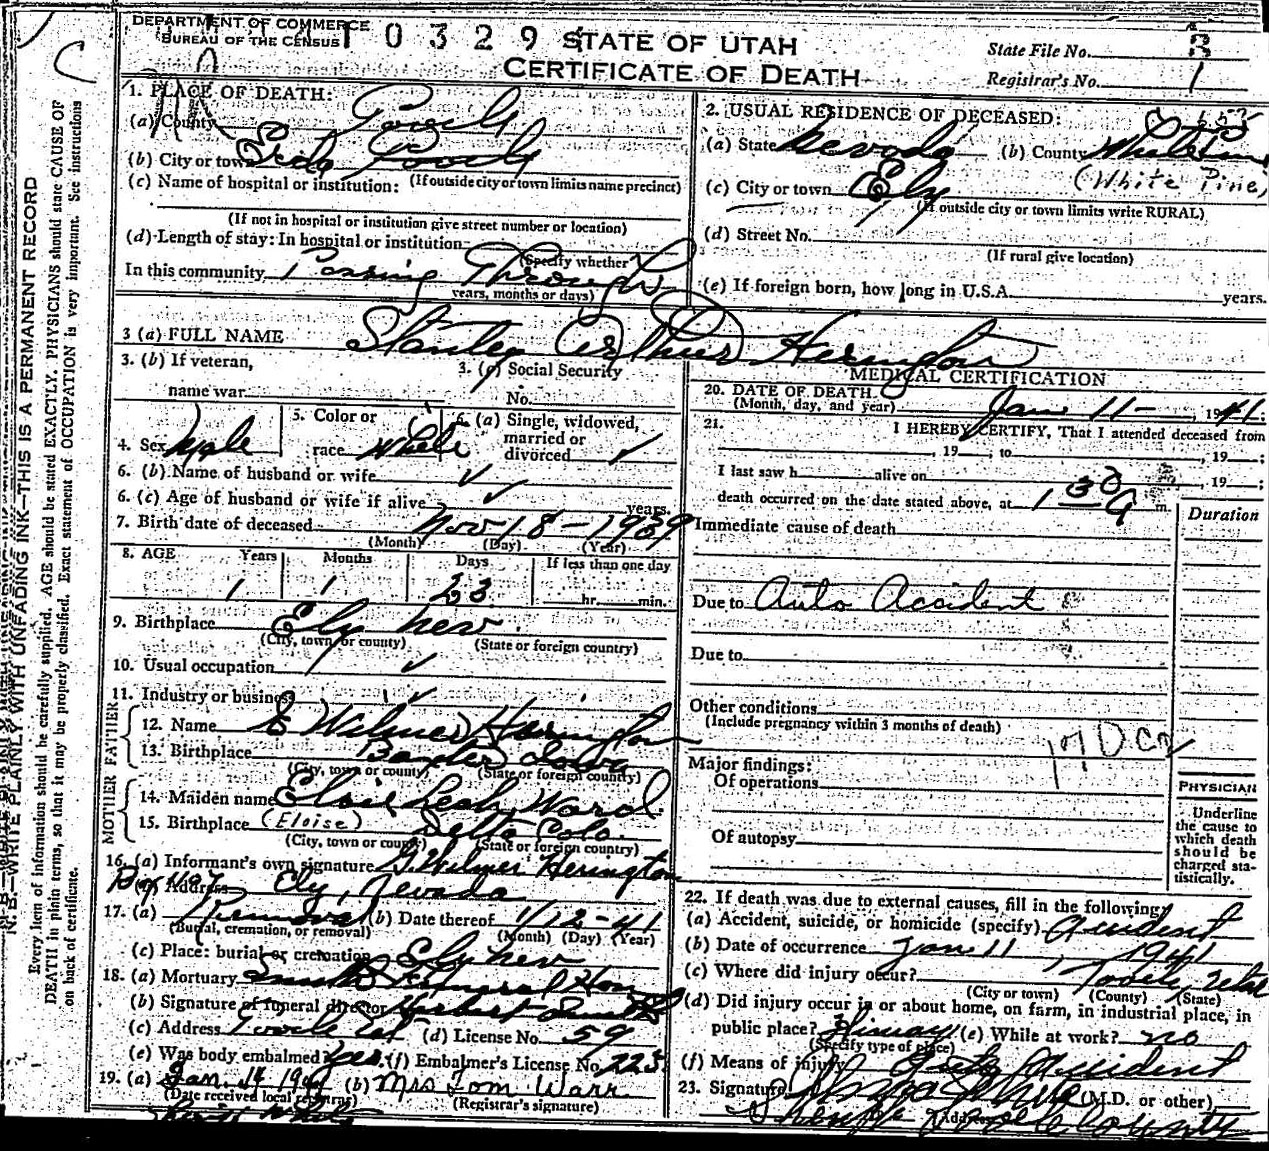 DEPARTMENT OF COMMERCE
BUREAU OF THE CENSUS
0 3 2 9
STATE OF UTAH
CERTIFICATE OF DEATH
State File No. 3
Registrar's No. 1
N.B.—WRITE PLAINLY WITH UNFADING INK—THIS IS A PERMANENT RECORD
Every item of information should be carefully supplied. AGE should be stated EXACTLY. PHYSICIANS should state CAUSE OF
DEATH in plain terms, so that it may be properly classified. Exact statement of OCCUPATION is very important. See instructions
on back of certificate.
1. PLACE OF DEATH:
(a) County Tooele
(b) City or town Tooele
(If outside city or town limits name precinct)
(c) Name of hospital or institution:
(If not in hospital or institution give street number or location)
(d) Length of stay: In hospital or institution
(Specify whether
In this community Passing Through
years, months or days)
2. USUAL RESIDENCE OF DECEASED:
(a) State Nevada (b) County White Pine
(White Pine)
(c) City or town Ely
(If outside city or town limits write RURAL)
(d) Street No.
(If rural give location)
(e) If foreign born, how long in U.S.A. years.
3 (a) FULL NAME Stanley Arthur Herington
3. (b) If veteran,
name war
3. (c) Social Security
No.
4. Sex Male
5. Color or
race White
6. (a) Single, widowed,
married or
divorced ✓
6. (b) Name of husband or wife ✓
6. (c) Age of husband or wife if alive ✓ years.
7. Birth date of deceased Nov 18 - 1939
(Month) (Day) (Year)
8. AGE Years Months Days If less than one day
1 1 23 hr. min.
9. Birthplace Ely Nev.
(City, town, or county) (State or foreign country)
10. Usual occupation ✓
11. Industry or business ✓
FATHER
12. Name Wilmer Herington
13. Birthplace Baxter Iowa
(City, town or county) (State or foreign country)
MOTHER
14. Maiden name Leah Ward
15. Birthplace (Eloise) Delta Colo.
(City, town or county) (State or foreign country)
16. (a) Informant's own signature G. Wilmer Herington
Address Ely, Nevada
17. (a) Removal (b) Date thereof 1/12-41
(Burial, cremation, or removal) (Month) (Day) (Year)
(c) Place: burial or cremation Ely Nev
18. (a) Mortuary Funeral Home
(b) Signature of funeral director Herbert
(c) Address Tooele (d) License No. 59
(e) Was body embalmed Yes. (f) Embalmer's License No. 223
19. (a) Jan. 14 1941 (b) Mrs Tom Warr
(Date received local registrar) (Registrar's signature)
MEDICAL CERTIFICATION
20. DATE OF DEATH
(Month, day, and year) Jan 11 -, 1941
21. I HEREBY CERTIFY, That I attended deceased from
, 19 ; to , 19 ;
I last saw h alive on , 19 ;
death occurred on the date stated above, at 1 30 a m.
Immediate cause of death
Duration
Due to Auto Accident
Due to
Other conditions
(Include pregnancy within 3 months of death)
Major findings:
Of operations
Of autopsy
PHYSICIAN
Underline
the cause to
which death
should be
charged sta-
tistically.
22. If death was due to external causes, fill in the following:
(a) Accident, suicide, or homicide (specify) Accident
(b) Date of occurrence Jan 11, 1941
(c) Where did injury occur? Tooele, Utah
(City or town) (County) (State)
(d) Did injury occur in or about home, on farm, in industrial place, in
public place? Hiway (e) While at work? no
(Specify type of place)
(f) Means of injury Auto Accident
23. Signature (M.D. or other)
Sheriff Tooele County